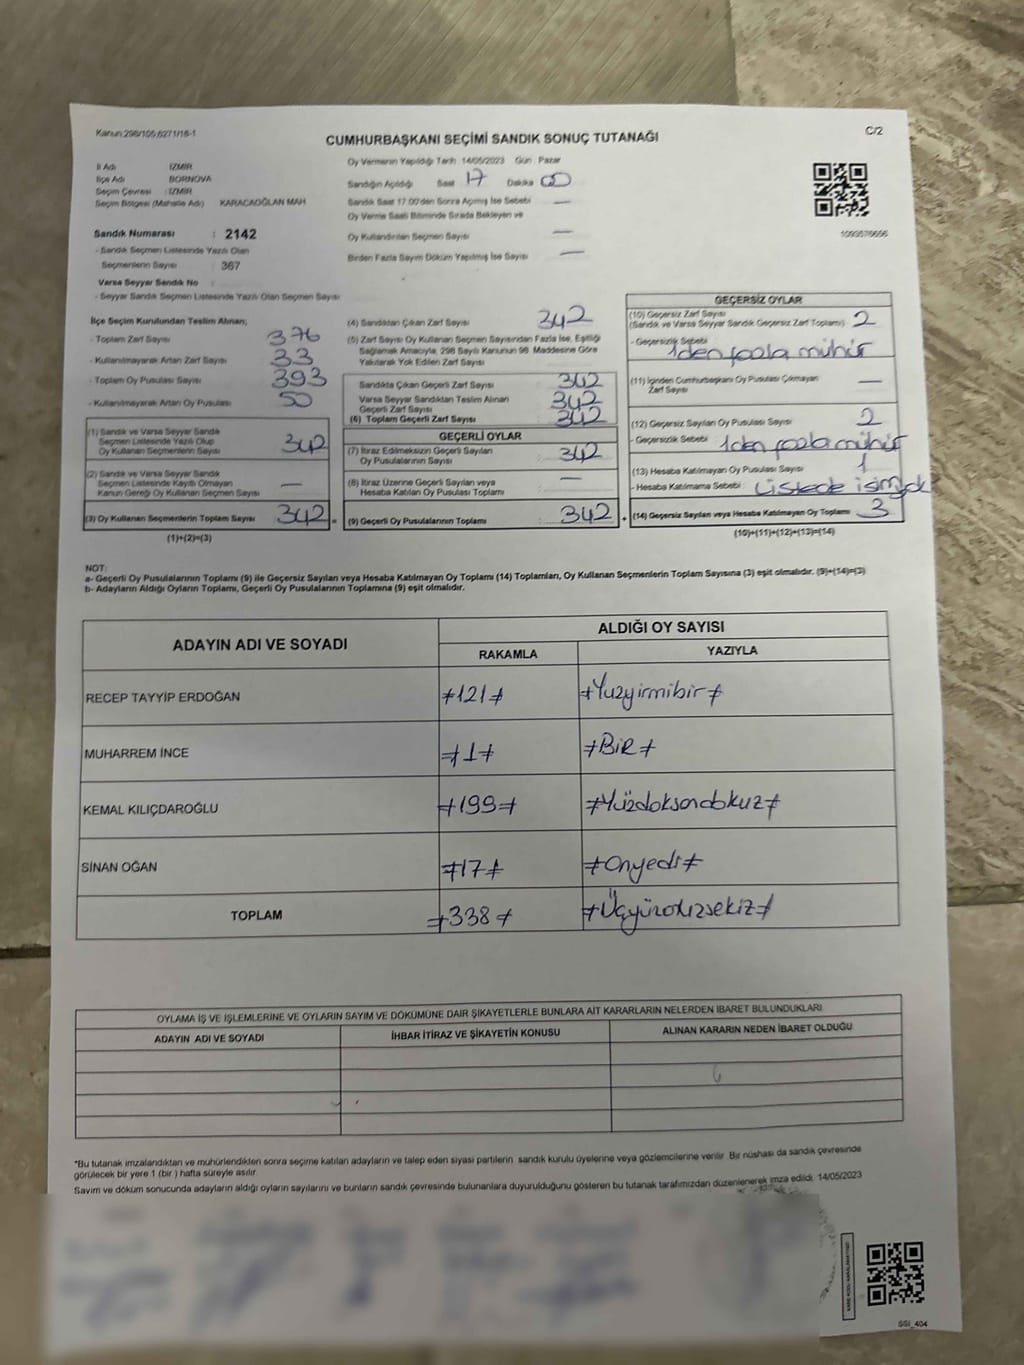 Kanun:298/105;6271/18-1
C/2
CUMHURBAŞKANI SEÇİMİ SANDIK SONUÇ TUTANAĞI
İl Adı İZMİR
İlçe Adı BORNOVA
Seçim Çevresi : İZMİR
Seçim Bölgesi (Mahalle Adı) KARACAOĞLAN MAH
Sandık Numarası : 2142
- Sandık Seçmen Listesinde Yazılı Olan
Seçmenlerin Sayısı : 367
Varsa Seyyar Sandık No :
- Seyyar Sandık Seçmen Listesinde Yazılı Olan Seçmen Sayısı
Oy Vermenin Yapıldığı Tarih :14/05/2023 Gün : Pazar
Sandığın Açıldığı Saat 17 Dakika 00
Sandık Saat 17.00'den Sonra Açılmış İse Sebebi —
Oy Verme Saati Bitiminde Sırada Bekleyen ve
Oy Kullandırılan Seçmen Sayısı —
Birden Fazla Sayım Döküm Yapılmış İse Sayısı —
1093576656
İlçe Seçim Kurulundan Teslim Alınan;
- Toplam Zarf Sayısı 376
- Kullanılmayarak Artan Zarf Sayısı 33
- Toplam Oy Pusulası Sayısı 393
- Kullanılmayarak Artan Oy Pusulası 50
(1) Sandık ve Varsa Seyyar Sandık
Seçmen Listesinde Yazılı Olup
Oy Kullanan Seçmenlerin Sayısı 342
(2) Sandık ve Varsa Seyyar Sandık
Seçmen Listesinde Kayıtlı Olmayan
Kanun Gereği Oy Kullanan Seçmen Sayısı —
(3) Oy Kullanan Seçmenlerin Toplam Sayısı 342 =
(1)+(2)=(3)
(4) Sandıktan Çıkan Zarf Sayısı 342
(5) Zarf Sayısı Oy Kullanan Seçmen Sayısından Fazla İse, Eşitliği
Sağlamak Amacıyla, 298 Sayılı Kanunun 98. Maddesine Göre
Yakılarak Yok Edilen Zarf Sayısı
Sandıkta Çıkan Geçerli Zarf Sayısı 342
Varsa Seyyar Sandıktan Teslim Alınan
Geçerli Zarf Sayısı 342
(6) Toplam Geçerli Zarf Sayısı 342
GEÇERLİ OYLAR
(7) İtiraz Edilmeksizin Geçerli Sayılan
Oy Pusulalarının Sayısı 342
(8) İtiraz Üzerine Geçerli Sayılan veya
Hesaba Katılan Oy Pusulası Toplamı —
(9) Geçerli Oy Pusulalarının Toplamı 342 +
GEÇERSİZ OYLAR
(10) Geçersiz Zarf Sayısı
(Sandık ve Varsa Seyyar Sandık Geçersiz Zarf Toplamı) 2
- Geçersizlik Sebebi 1den fazla mühür
(11) İçinden Cumhurbaşkanı Oy Pusulası Çıkmayan
Zarf Sayısı —
(12) Geçersiz Sayılan Oy Pusulası Sayısı 2
- Geçersizlik Sebebi 1den fazla mühür
(13) Hesaba Katılmayan Oy Pusulası Sayısı 1
- Hesaba Katılmama Sebebi : Listede isim yok
(14) Geçersiz Sayılan veya Hesaba Katılmayan Oy Toplamı 3
(10)+(11)+(12)+(13)=(14)
NOT:
a- Geçerli Oy Pusulalarının Toplamı (9) ile Geçersiz Sayılan veya Hesaba Katılmayan Oy Toplamı (14) Toplamları, Oy Kullanan Seçmenlerin Toplam Sayısına (3) eşit olmalıdır. (9)+(14)=(3)
b- Adayların Aldığı Oyların Toplamı, Geçerli Oy Pusulalarının Toplamına (9) eşit olmalıdır.
ADAYIN ADI VE SOYADI
ALDIĞI OY SAYISI
RAKAMLA YAZIYLA
RECEP TAYYİP ERDOĞAN ≠121≠ ≠Yüzyirmibir≠
MUHARREM İNCE ≠1≠ ≠BİR≠
KEMAL KILIÇDAROĞLU ≠199≠ ≠Yüzdoksandokuz≠
SİNAN OĞAN ≠17≠ ≠Onyedi≠
TOPLAM ≠338≠ ≠Üçyüzotuzsekiz≠
OYLAMA İŞ VE İŞLEMLERİNE VE OYLARIN SAYIM VE DÖKÜMÜNE DAİR ŞİKAYETLERLE BUNLARA AİT KARARLARIN NELERDEN İBARET BULUNDUKLARI
ADAYIN ADI VE SOYADI İHBAR İTİRAZ VE ŞİKAYETİN KONUSU ALINAN KARARIN NEDEN İBARET OLDUĞU
*Bu tutanak imzalandıktan ve mühürlendikten sonra seçime katılan adayların ve talep eden siyasi partilerin sandık kurulu üyelerine veya gözlemcilerine verilir. Bir nüshası da sandık çevresinde
görülecek bir yere 1 (bir ) hafta süreyle asılır.
Sayım ve döküm sonucunda adayların aldığı oyların sayılarını ve bunların sandık çevresinde bulunanlara duyurulduğunu gösteren bu tutanak tarafımızdan düzenlenerek imza edildi. 14/05/2023
SSI_404